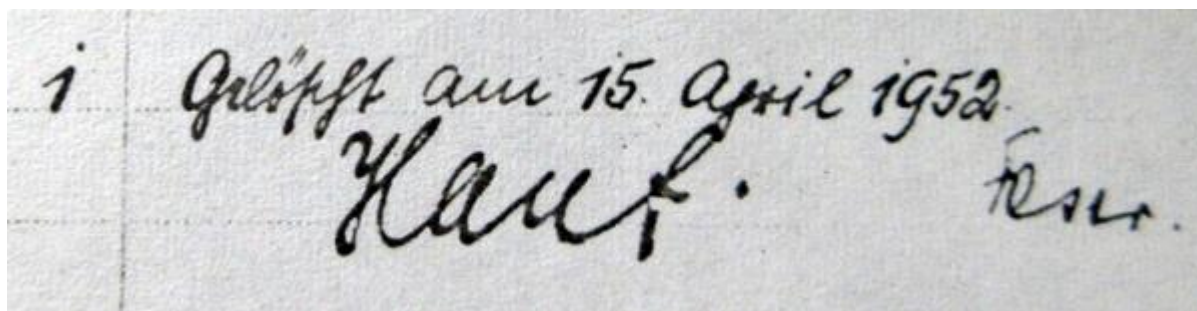 1 Gelöscht am 15. April 1952.
Hauf.